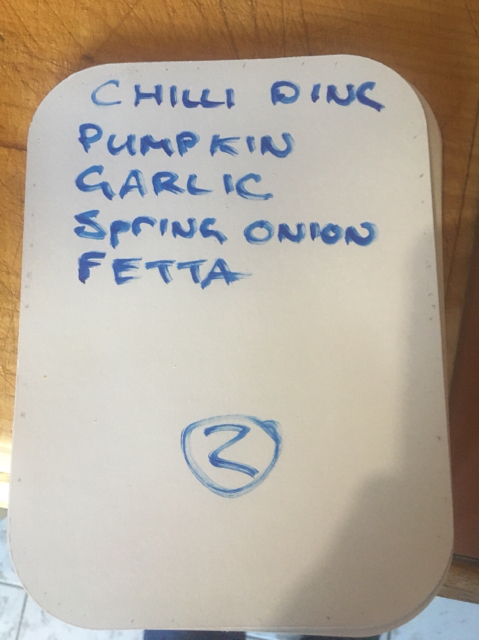 CHILLI DING
PUMPKIN
GARLIC
SPRING ONION
FETTA
2